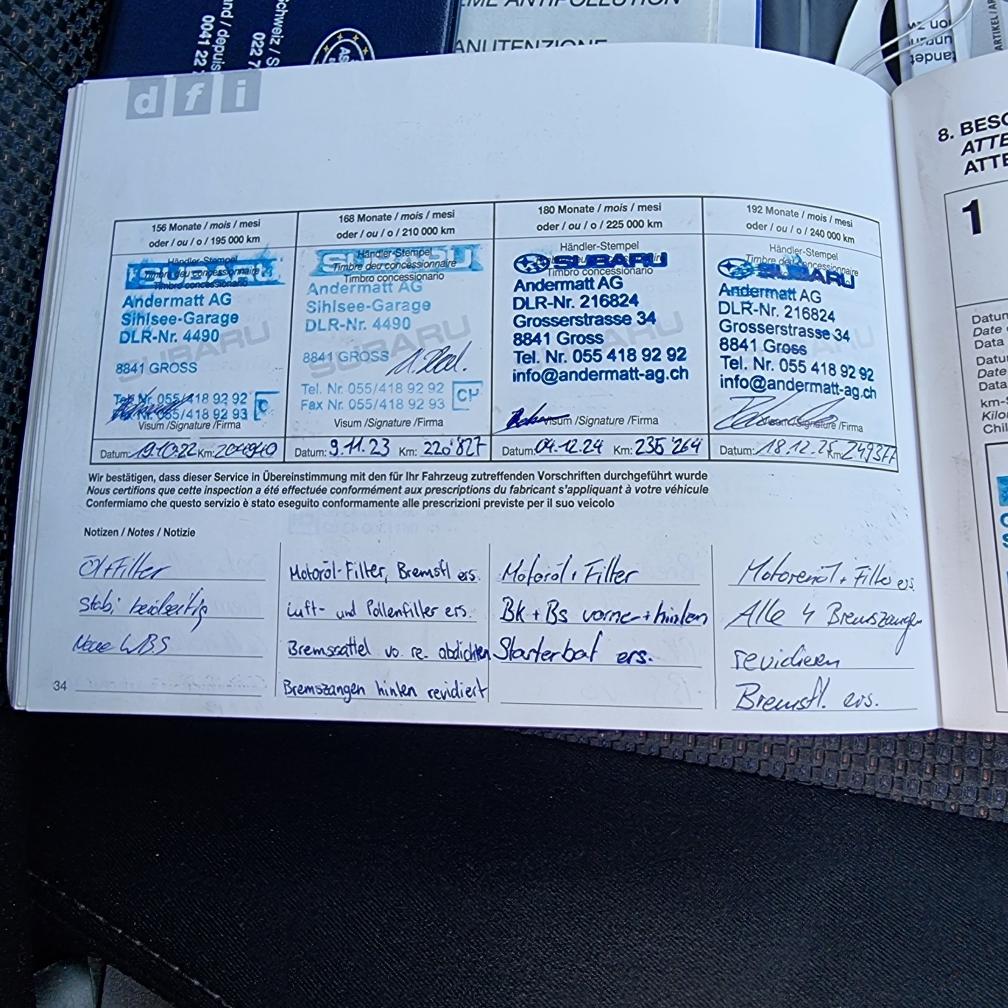 ME ANTIPOLLUTION
MANUTENZIONE
Schweiz / S
022 7
0041 22
dfi
8. BESC
ATTE
ATTE
1
156 Monate / mois / mesi
oder / ou / o / 195 000 km
Händler-Stempel
Timbre du concessionnaire
Timbro concessionario
Andermatt AG
Sihlsee-Garage
DLR-Nr. 4490
SUBARU
8841 GROSS
Tel. Nr. 055/418 92 92
Fax Nr. 055/418 92 93
Visum /Signature /Firma
Datum: 19.10.22 Km: 204940
168 Monate / mois / mesi
oder / ou / o / 210 000 km
SUBARU
Händler-Stempel
Timbre du concessionnaire
Timbro concessionario
Andermatt AG
Sihlsee-Garage
DLR-Nr. 4490
SUBARU
8841 GROSS
Tel. Nr. 055/418 92 92
Fax Nr. 055/418 92 93
CH
Visum /Signature /Firma
Datum: 9.11.23 Km: 220'827
180 Monate / mois / mesi
oder / ou / o / 225 000 km
Händler-Stempel
SUBARU
Timbro concessionario
Andermatt AG
DLR-Nr. 216824
Grosserstrasse 34
8841 Gross
Tel. Nr. 055 418 92 92
info@andermatt-ag.ch
Visum /Signature /Firma
Datum: 04.12.24 Km: 235'264
192 Monate / mois / mesi
oder / ou / o / 240 000 km
Händler-Stempel
Timbre du concessionnaire
SUBARU
Timbro concessionario
Andermatt AG
DLR-Nr. 216824
Grosserstrasse 34
8841 Gross
Tel. Nr. 055 418 92 92
info@andermatt-ag.ch
Visum /Signature /Firma
Datum: 18.12.25 Km: 249377
Wir bestätigen, dass dieser Service in Übereinstimmung mit den für Ihr Fahrzeug zutreffenden Vorschriften durchgeführt wurde
Nous certifions que cette inspection a été effectuée conformément aux prescriptions du fabricant s'appliquant à votre véhicule
Confermiamo che questo servizio è stato eseguito conformemente alle prescrizioni previste per il suo veicolo
Notizen / Notes / Notizie
Öl+Filter
Stabi beidseitig
Neue WBS
Motoröl-Filter, Bremsfl ers.
Luft- und Pollenfilter ers.
Bremssattel vo. re. abdichten
Bremszangen hinten revidiert
Motoröl + Filter
Bk + Bs vorne + hinten
Starterbat ers.
Motorenöl + Filter ers.
Alle 4 Bremszangen
revidieren
Bremsfl. ers.
34
Datum
Date
Data
Datum
Date
Data
km-S
Kilo
Chil